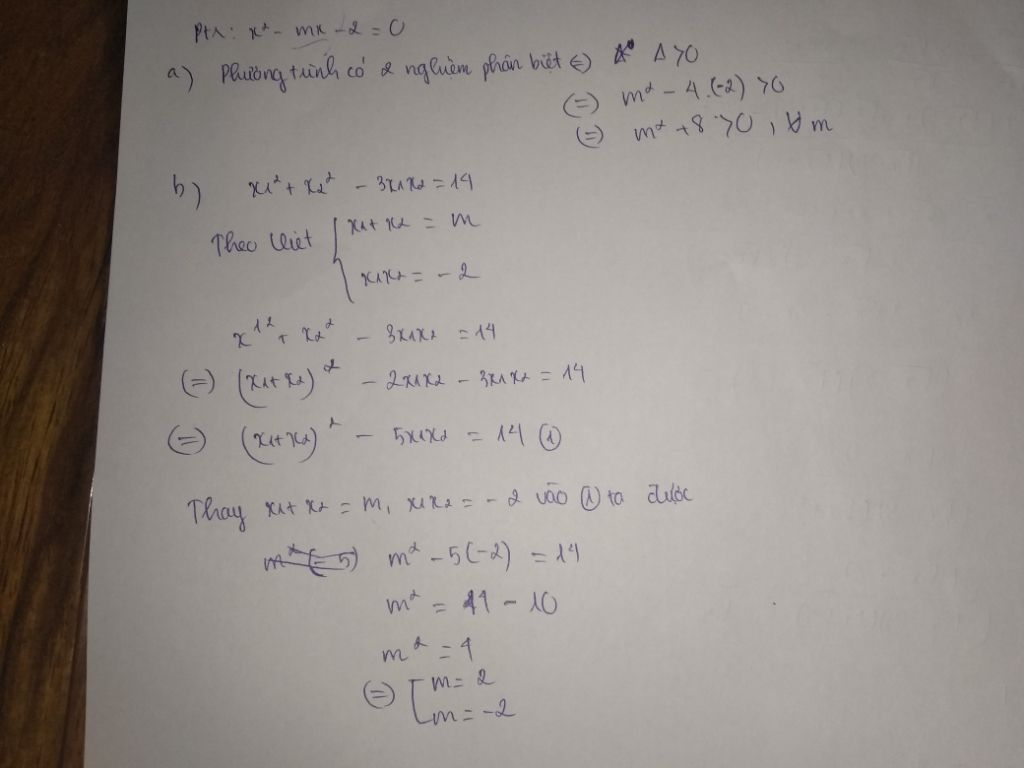 Pt1: x² - mx - 2 = 0
a) Phương trình có 2 nghiệm phân biệt (=) Δ > 0
(=) m² - 4.(-2) > 0
(=) m² + 8 > 0, ∀m
b) x1² + x2² - 3x1x2 = 14
Theo Viét { x1 + x2 = m
x1x2 = -2
x1² + x2² - 3x1x2 = 14
(=) (x1 + x2)² - 2x1x2 - 3x1x2 = 14
(=) (x1 + x2)² - 5x1x2 = 14 ①
Thay x1 + x2 = m, x1x2 = -2 vào ① ta được
m² (-5) m² - 5(-2) = 14
m² = 14 - 10
m² = 4
(=) [ m = 2
m = -2